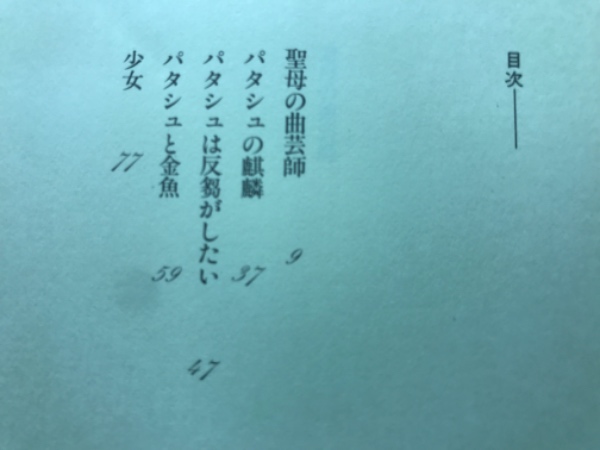 目次
聖母の曲芸師 9
パタシュの麒麟 37
パタシュは反芻がしたい 47
パタシュと金魚 59
少女 77